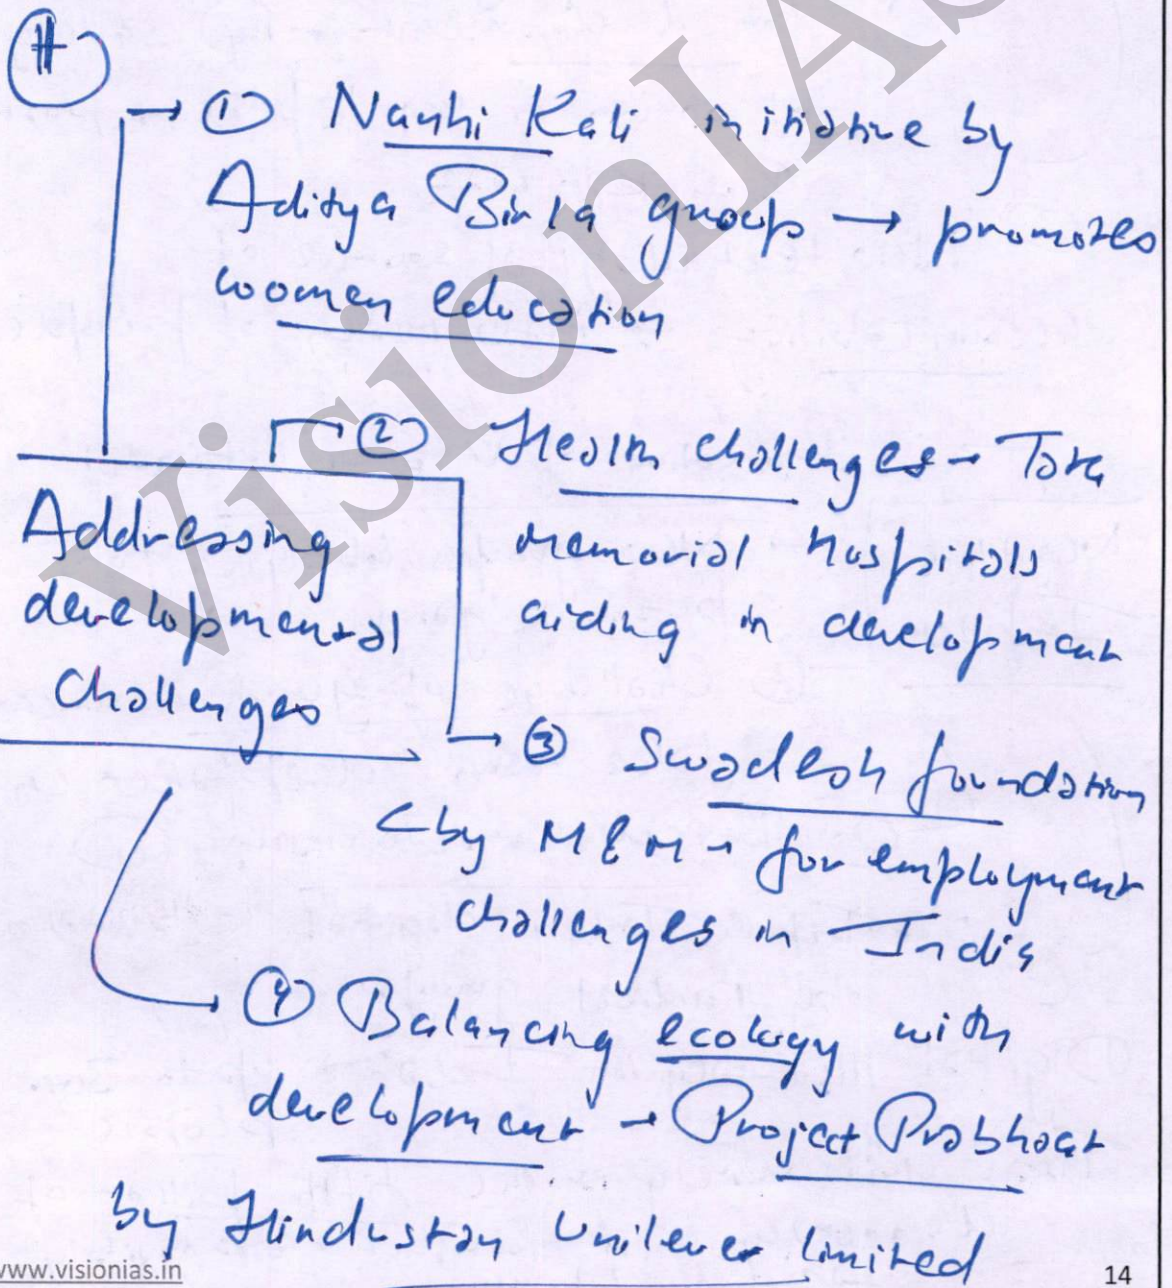 #
→ ① Nanhi Kali initiative by
Aditya Birla group → promotes
women education
② Health challenges → Tata
memorial hospitals
aiding in development
Addressing
developmental
challenges
→ ③ Swadesh foundation
by M&M → for employment
challenges in India
→ ④ Balancing ecology with
development → Project Prabhat
by Hindustan Unilever limited
VisionIAS
www.visionias.in
14